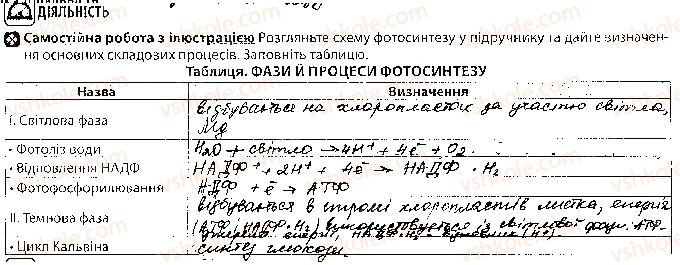 ДІЯЛЬНІСТЬ
Самостійна робота з ілюстрацією. Розгляньте схему фотосинтезу у підручнику та дайте визначен-
ня основних складових процесів. Заповніть таблицю.
Таблиця. ФАЗИ Й ПРОЦЕСИ ФОТОСИНТЕЗУ
Назва Визначення
І. Світлова фаза
відбувається на хлоропластах за участю світла,
• Фотоліз води H₂O + світло → 4H⁺ + 4ē + O₂.
• Відновлення НАДФ НАДФ⁺ + 2H⁺ + 4ē → НАДФ · H₂
• Фотофосфорилювання АДФ + ē → АТФ
ІІ. Темнова фаза
відбувається в стромі хлоропластів листка, енергія
(АТФ, НАДФ·H₂) використовується із світлової фази. АТФ-
• Цикл Кальвіна
синтез глюкози.